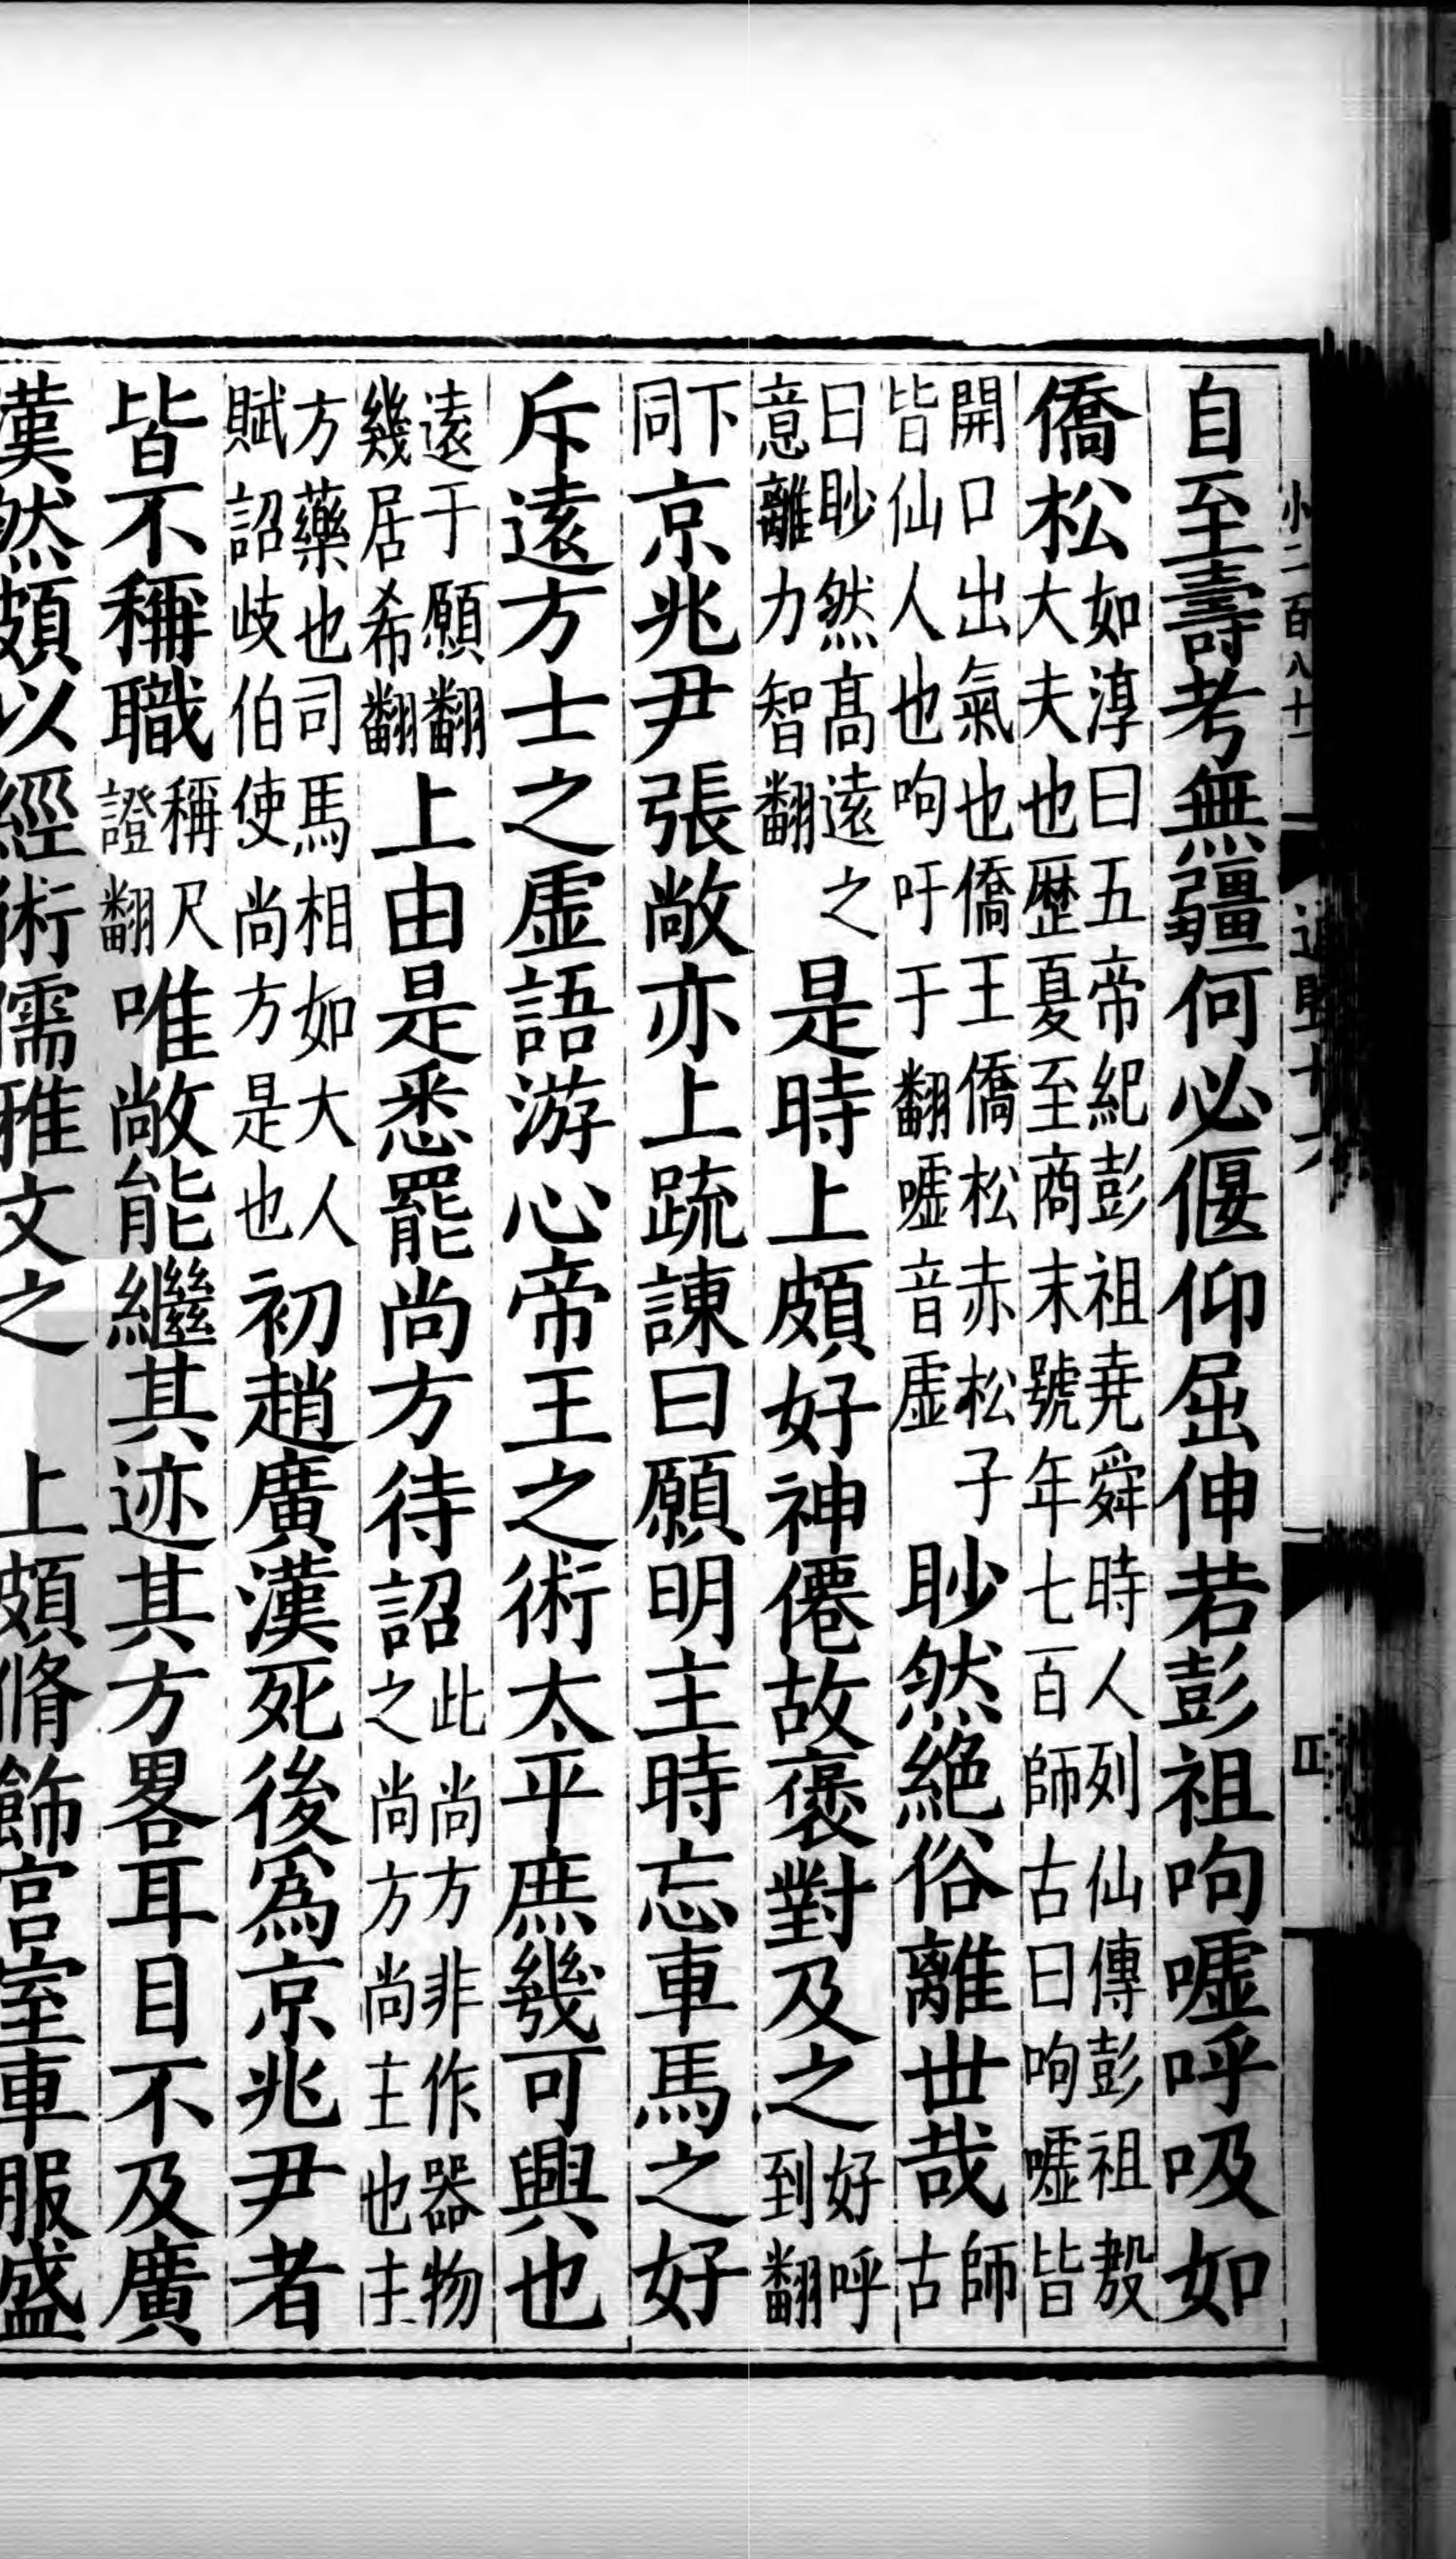 自至壽考無疆何必偃仰屈伸若彭祖呴噓呼吸如
僑松如淳曰五帝紀彭祖堯舜時人列仙傳彭祖殷大夫也歴夏至商末號年七百師古曰呴噓皆
開口出氣也僑王僑松赤松子皆仙人也呴吁于翻噓音虛眇然絶俗離世哉師古
曰眇然高遠之意離力智翻是時上頗好神僊故褒對及之好呼到翻
下同京兆尹張敞亦上疏諫曰願明主時忘車馬之好
斥遠方士之虛語游心帝王之術太平庶幾可興也
遠于願翻幾居希翻上由是悉罷尚方待詔此尚方非作器物之尚方尚主也主
方藥也司馬相如大人賦詔歧伯使尚方是也初趙廣漢死後爲京兆尹者
皆不稱職稱尺證翻唯敞能繼其迹其方畧耳目不及廣
漢然頗以經術儒雅文之 上頗脩飾宮室車服盛
小二百八十一